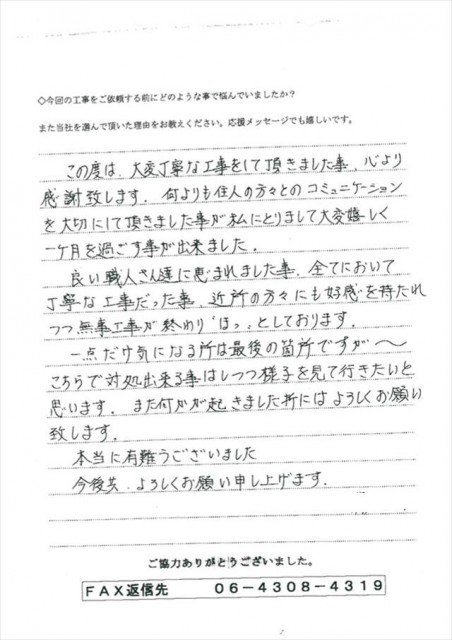 ◇今回の工事をご依頼する前にどのような事で悩んでいましたか？
また当社を選んで頂いた理由をお教えください。応援メッセージでも嬉しいです。
この度は、大変丁寧な工事をして頂きました事、心より
感謝致します。何よりも住人の方々とのコミュニケーション
を大切にして頂きました事が私にとりまして大変嬉しく
一ヶ月を過ごす事が出来ました。
良い職人さん達に恵まれました事、全てにおいて
丁寧な工事だった事、近所の方々にも好感を持たれ
つつ無事工事が終わり"ほっ"としております。
一点だけ気になる所は最後の箇所ですが〜
こちらで対処出来る事はしつつ様子を見て行きたいと
思います。また何かが起きました折にはよろしくお願い
致します。
本当に有難うございました
今後共、よろしくお願い申し上げます。
ご協力ありがとうございました。
ＦＡＸ返信先　０６－４３０８－４３１９